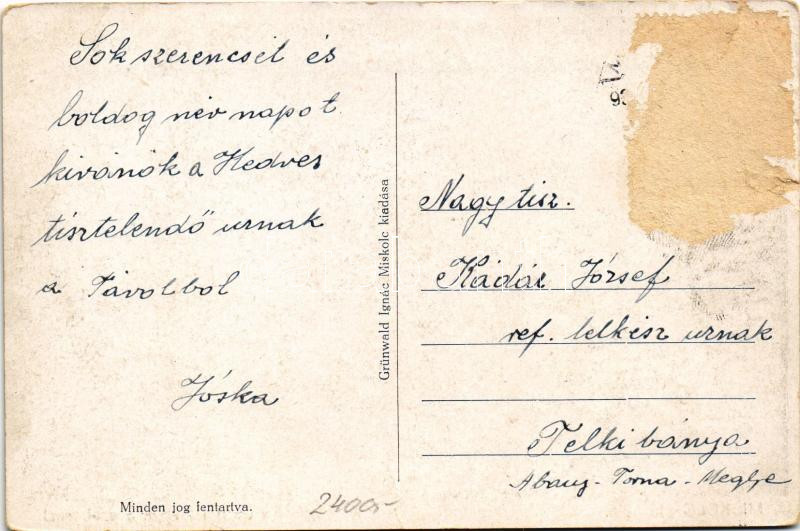 Sok szerencsét és
boldog név napot
kivánok a Kedves
tisztelendő urnak
a Távolból
Jóska
Minden jog fentartva.
2400-
Grünwald Ignác Miskolc kiadása
Nagy tisz.
Kádár József
ref. lelkész urnak
Telki bánya
Abauj-Torna-Megye